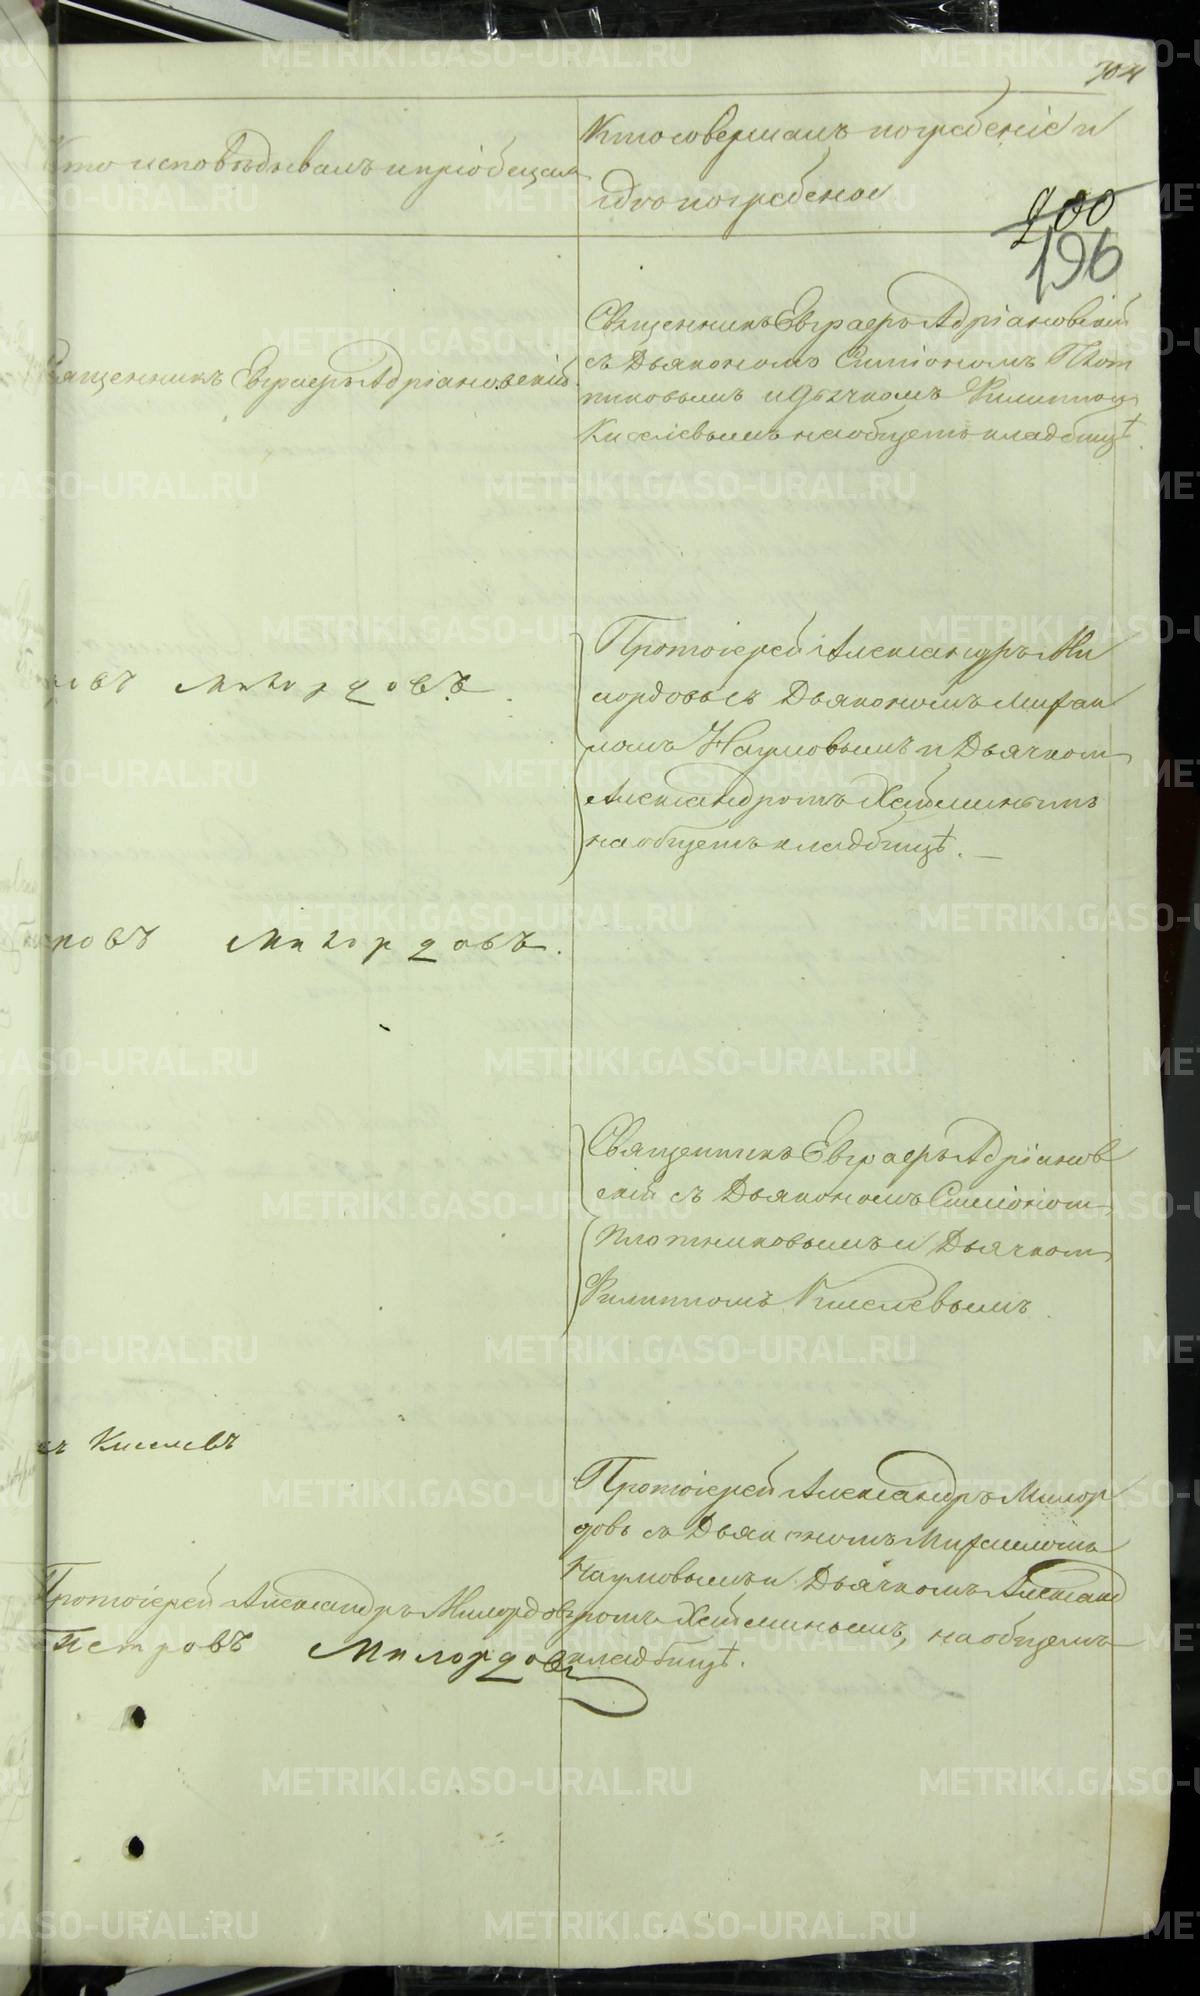 304
Кто исповѣдывалъ и пріобщалъ
Кто совершалъ погребеніе и
гдѣ погребенъ
200
196
Священникъ Евграфъ Адріановскій
Священникъ Евграфъ Адріановскій
съ Дьякономъ Симіономъ Плот
никовымъ и Дьячкомъ Филиппом
Киселевымъ на общемъ кладбищѣ.
Протоіерей Александръ Ми
лордовъ съ Дьякономъ Михаи
ломъ Наумовымъ и Дьячком
Александромъ Хабминымъ
на общемъ кладбищѣ. —
овъ Милордовъ.
ровъ Милордовъ.
Священникъ Евграфъ Адріанов
скій съ Дьякономъ Симіоном
Плотниковымъ и Дьячком
Филиппомъ Киселевымъ.
Киселевъ
Протоіерей Александръ Милор
довъ съ Дьякономъ Михаиломъ
Наумовымъ и Дьячкомъ Александ
ромъ Хабминымъ, на общемъ
кладбищѣ.
Протоіерей Александръ Милордовъ
Петровъ Милордовъ
METRIKI.GASO-URAL.RU